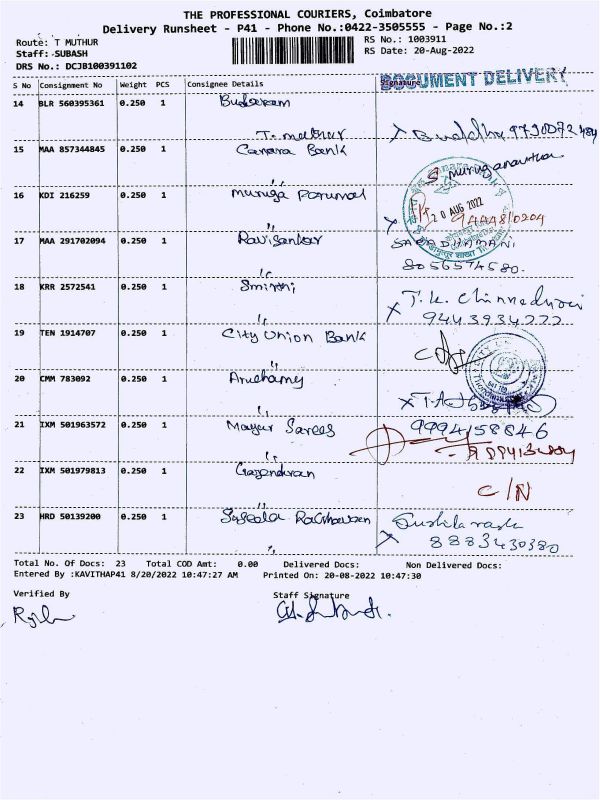 THE PROFESSIONAL COURIERS, Coimbatore
Delivery Runsheet - P41 - Phone No.:0422-3505555 - Page No.:2
Route: T MUTHUR
RS No.: 1003911
Staff: -SUBASH
RS Date: 20-Aug-2022
DRS No.: DCJB100391102
S No Consignment No Weight PCS Consignee Details Signature
DOCUMENT DELIVERY
14 BLR 560395361 0.250 1
T. muthur
15 MAA 857344845 0.250 1 Canara Bank
16 KDI 216259 0.250 1 Muruga Perumal
20 AUG 2022
9444810204
17 MAA 291702094 0.250 1 Ravisankar
8056574580.
18 KRR 2572541 0.250 1 Smirthi
T.K. Chinnadurai
9443934222
19 TEN 1914707 0.250 1 City Union Bank
20 CMM 783092 0.250 1 Aruchamy
21 IXM 501963572 0.250 1 Mayur Sarees
9994158846
22 IXM 501979813 0.250 1 Gajendiran
C/N
23 HRD 50139200 0.250 1
8883430380
Total No. Of Docs: 23 Total COD Amt: 0.00 Delivered Docs: Non Delivered Docs:
Entered By :KAVITHAP41 8/20/2022 10:47:27 AM Printed On: 20-08-2022 10:47:30
Verified By Staff Signature